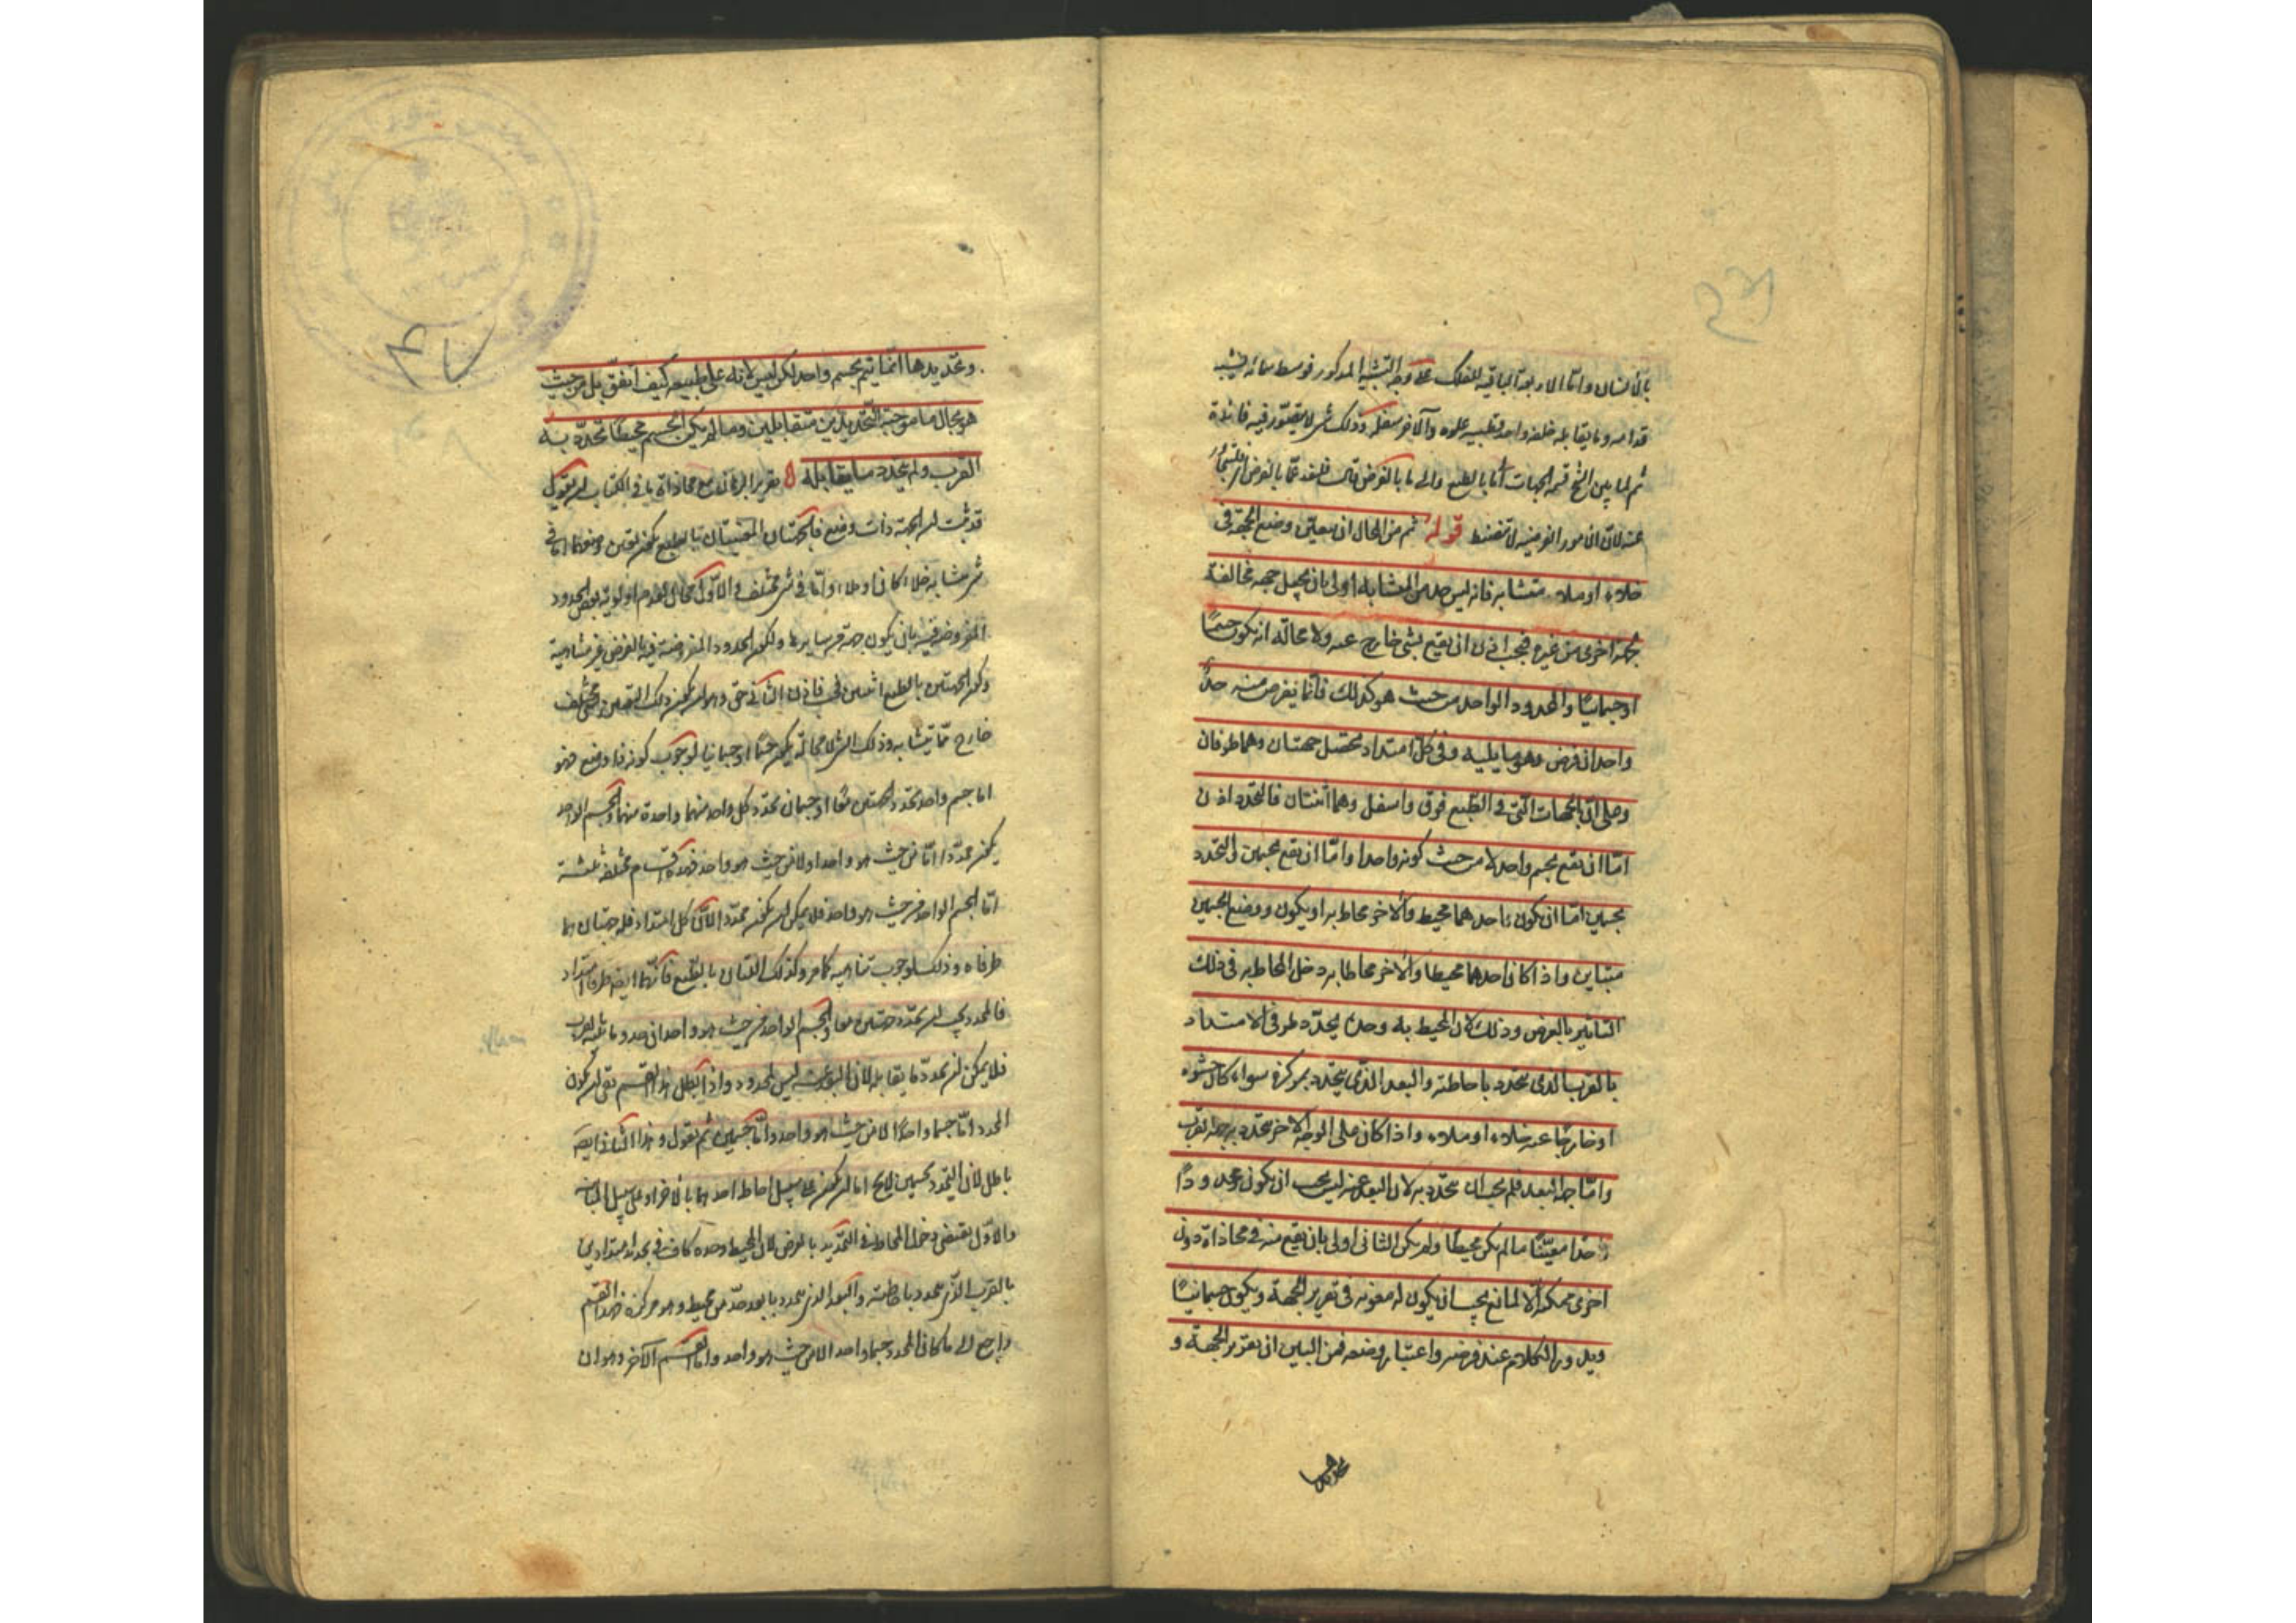 بالانسان واما الاربعة الباقية للفلك على وجه التشبيه المذكور فوسط سمائه يشبه
قدامه وما يقابله خلفه واحد قطبيه علوه والآخر سفله وذلك شئ لا يتصور فيه فائدة
ثم لما بين الشيخ قسمة الجهات الى ما بالطبع والى ما بالفرض قال فلنعد عما بالفرض
عنه لان الامور الفرضية لا تنضبط قوله ثم من المحال ان يتعين وضع الجهة في
خلاء او ملاء متشابه فانه ليس حد من المتشابه اولى بان يجعل جهة مخالفة
لجهة اخرى من غيره فيجب اذن ان يقع بشئ خارج عنه ولا محالة انه يكون جسما
او جسمانيا والمحدود الواحد من حيث هو كذلك فانما يفرض منه حد
واحد ان فرض وهو ما يليه وفي كل امتداد يحصل جهتان وهما طرفان
وعلى ان الجهات التي في الطبع فوق واسفل وهما اثنتان فالتحدد اذن
اما ان يقع بجسم واحد لا من حيث كونه واحدا واما ان يقع بجسمين والتحدد
بجسمين اما ان يكون احدهما محيط والآخر محاط به او يكون ووضع الجسمين
متباين واذا كان احدهما محيطا والآخر محاطا به دخل المحاط به في ذلك
التاثير بالعرض وذلك لان المحيط به وحده يحدد طرفي الامتداد
بالقرب الذي يتحدد باحاطته والبعد الذي يتحدد بمركزه سواء كان حشوه
او خارجا عنه خلاء او ملاء واذا كان على الوجه الآخر تحدد به جهة القرب
واما جهة البعد فلم يجب ان يتحدد به لان البعد عنه ليس يجب ان يكون محدودا
حدا معينا ما لم يكن محيطا ولم يكن الثاني اولى بان يقع منه في محاذاة دون
اخرى ممكنة الا لمانع يجب ان يكون له معونة في تقرير الجهة ويكون جسمانيا
ويدور الكلام عند فرضه واعتبار وضعه فمن البين ان تقرير الجهة و
وتحديدها انما يتم بجسم واحد لكن ليس لانه على طبيعة كيف اتفق بل من حيث
هو بحال ما موجبة لتحديدين متقابلين وما لم يكن الجسم محيطا تحدد به
القرب ولم يتحدد ما يقابله تقرير البرهان مع محاذاة ما في الكتاب ان يقول
قد ثبت ان الجهة ذات وضع فالجهتان المتعينتان بالطبع يكون تعين وضعهما اما في
شئ متشابه خلاء كان او ملاء واما في شئ مختلف والاول محال لعدم اولوية بعض الحدود
المفروضة فيه بان يكون جهة من سايرها ولكون الحدود المفروضة فيه بالفرض غير متناهية
وكون الجهتين بالطبع اثنتين فحسب فاذن الثاني حق وهو ان يكون ذلك التعين بشئ مختلف
خارج مما يتشابه وذلك الشئ لا محالة يكون جسما او جسمانيا لوجوب كونه ذا وضع فهو
اما جسم واحد يحدد الجهتين معا او جسمان يحدد كل واحد منهما واحدة منهما والجسم الواحد
يكون محددا اما من حيث هو واحد او لا من حيث هو واحد فهذه اقسام مختلفة ثلثة
اما الجسم الواحد من حيث هو واحد فلا يمكن ان يكون محددا لان كل امتداد فله جهتان هما
طرفاه وذلك لوجوب تناهيه كما مر وكذلك اللتان بالطبع فانهما ايضا طرفا امتداد
فالمحدد يجب ان يحدد جهتين معا والجسم الواحد من حيث هو واحد ان حدد ما يليه بالقرب
فلا يمكن ان يحدد ما يقابله لان البعد عنه ليس بمحدود واذا بطل هذا القسم بقي ان يكون
المحدد اما جسما واحدا لا من حيث هو واحد واما جسمين ثم نقول وهذا الثاني ايضا
باطل لان التحدد بجسمين لا يخ اما ان يكون على سبيل احاطة احدهما بالآخر او على سبيل المباينة
والاول يقتضي دخول المحاط في التحديد بالعرض لان المحيط وحده كاف في تحديد امتدادين
بالقرب الذي يتحدد باحاطته والبعد الذي يتحدد بابعد حد من محيطه وهو مركزه فهذا القسم
راجع الى ما كان المحدد جسما واحدا لا من حيث هو واحد واما القسم الآخر وهو ان